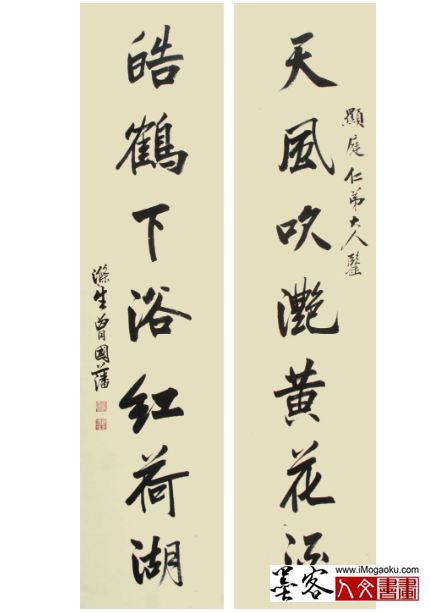 天風吹灔黄花
顯庭仁弟大人鑒
皓鶴下浴紅荷湖
滌生曾國藩
墨客
www.iMogaoku.com
人文書畫